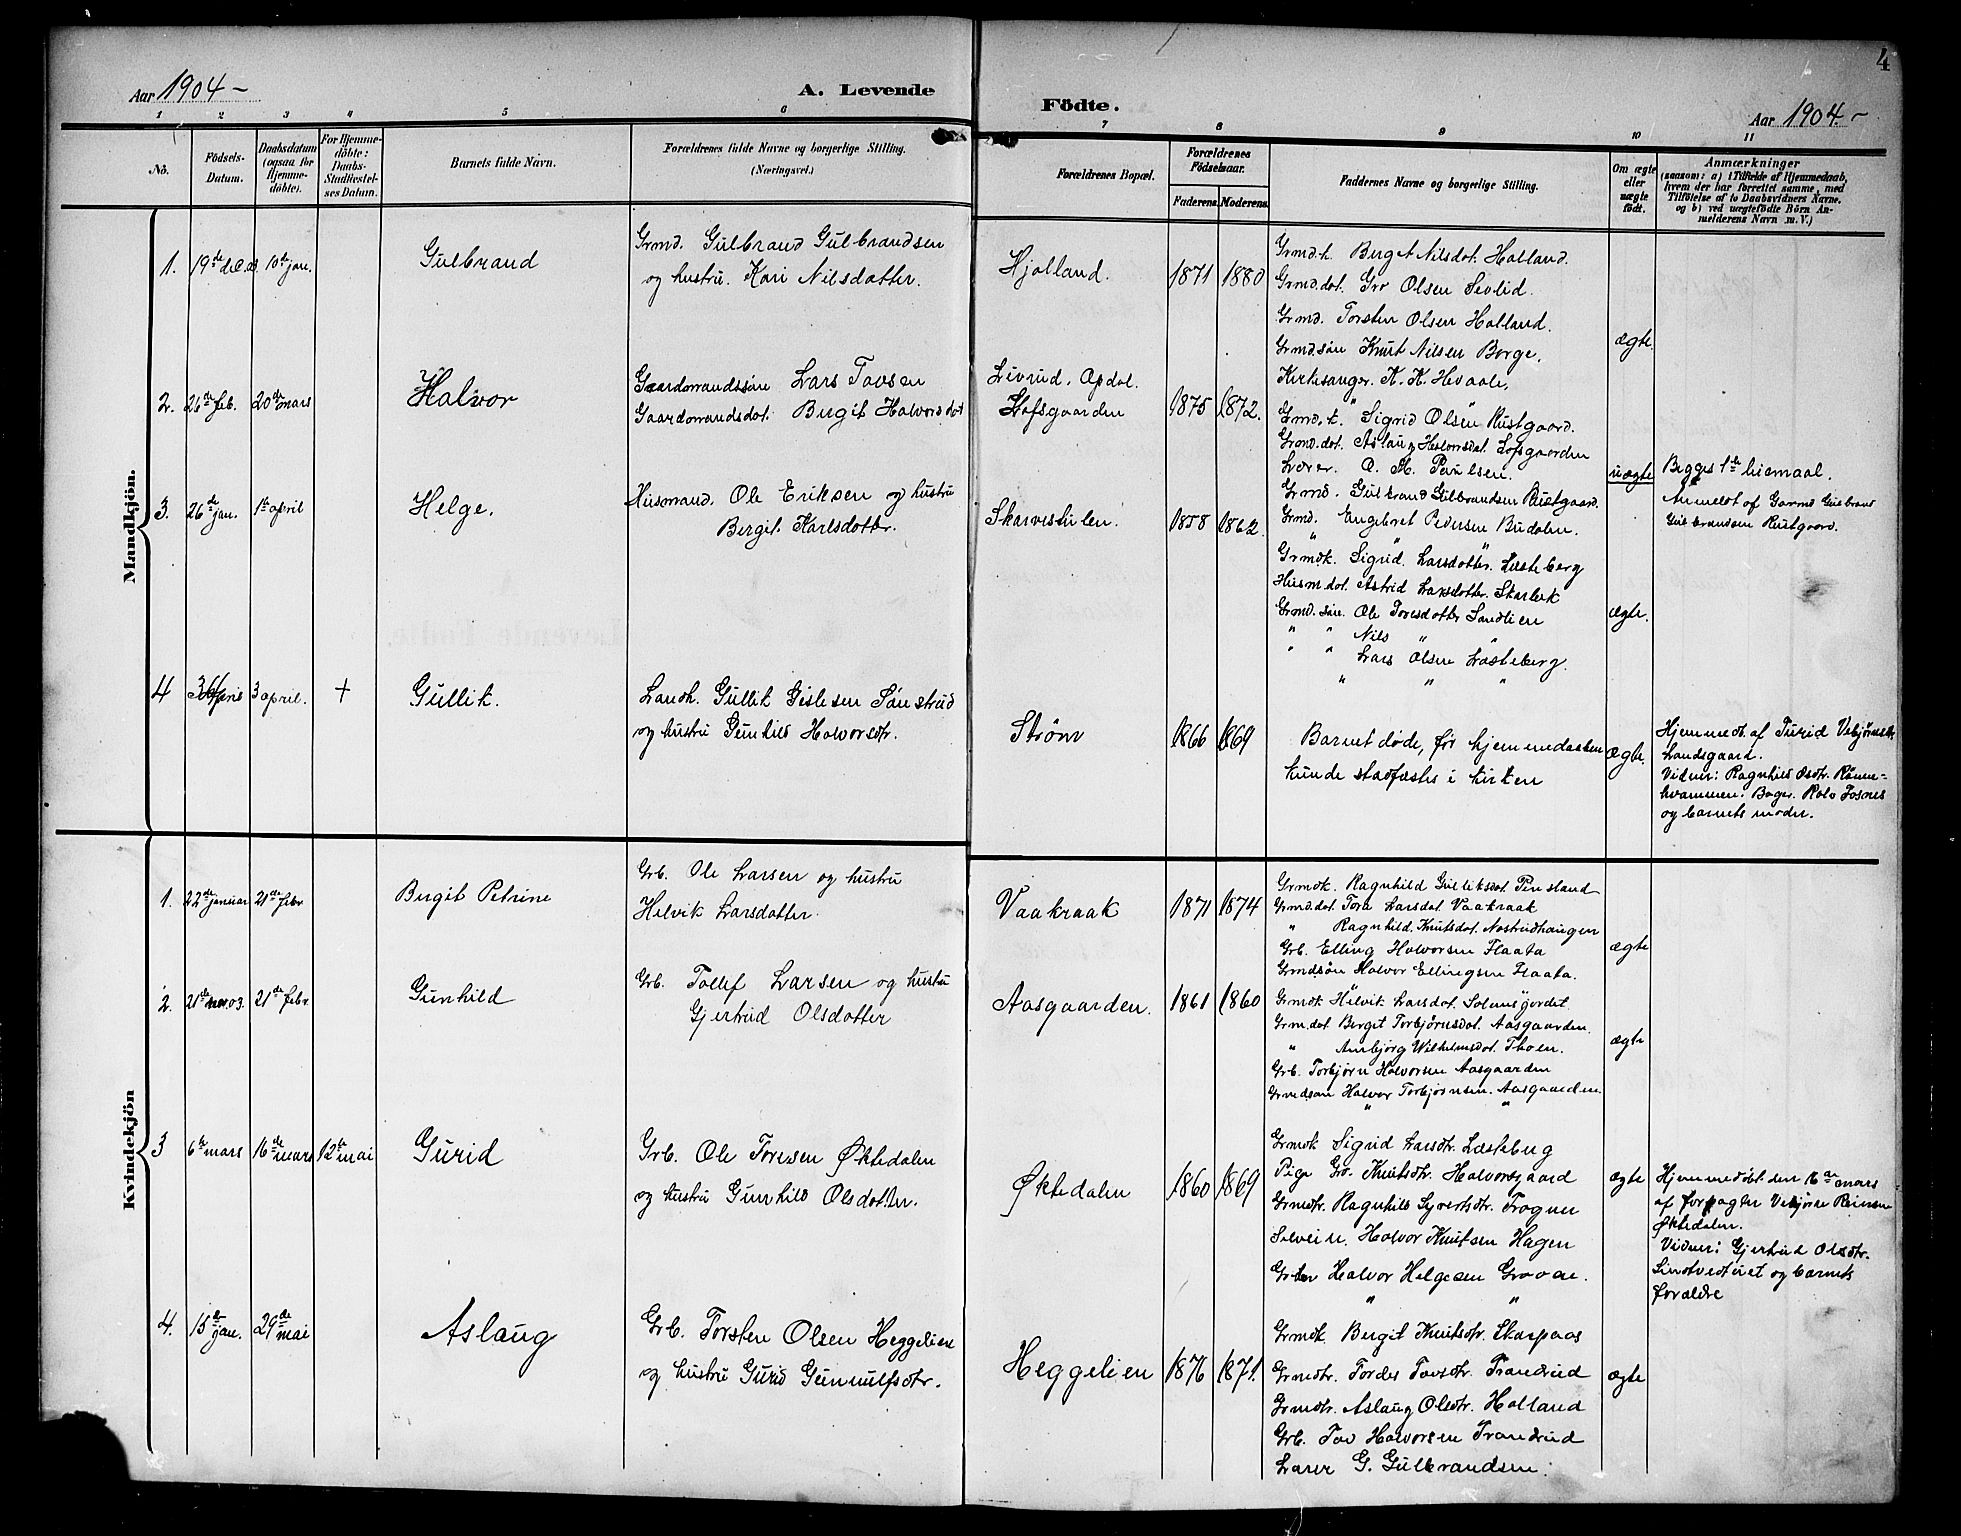 4
Aar 1904 –
A. Levende
Födte.
Aar 1904 –
1 2 3 4 5 6 7 8 9 10 11
No.
Födsels-
Datum.
Daabsdatum
(ogsaa for
Hjemme-
döbte).
For Hjemme-
döbte:
Daabs-
Stadfæstel-
ses Datum.
Barnets fulde Navn.
Forældrenes fulde Navne og borgerlige Stilling.
(Næringsvei.)
Forældrenes Bopæl.
Forældrenes
Födselsaar.
Faderens. Moderens.
Faddernes Navne og borgerlige Stilling.
Om ægte
eller
uægte
födt.
Anmærkninger
(saasom: a) i Tilfælde af Hjemmedaab,
hvem der har forrettet samme, med
Tilföielse af to Daabsvidners Navne.
og b) ved uægtefödte Börn An-
melderens Navn m. V.)
Mandkjön.
1. 19de dec. 03. 10de jan.
Gulbrand
Grmd. Gulbrand Gulbrandsen
og hustru. Kari Nilsdatter.
Hjolland.
1871 1880
Grmd.k. Birget Nilsdot. Holland.
Grmd.dot. Gro Olsen Sevlid.
Grmd. Torsten Olsen Holland.
Grmd.søn Knut Nilsen Borge.
Kirkesanger. K. K. Hevaale.
ægte.
2. 26de feb. 20de mars
Halvor
Gaardmandssøn Lars Tovsen
Gaardmandsdot. Birgit Halvorsdot
Livrud. Opdal.
Lofsgaarden
1875 1872.
Grmd.k. Sigrid Olsen Rustgaard.
Grmd.dot. Aslaug Halvorsdot. Lofsgaarden
Lærer. O. H. Paulsen.
Grmd. Gulbrand Gulbrandsen Rustgaard.
Grmd. Engebret Pedersen Budalen.
uægte
Begges 1ste leiemaal.
Anmeldt af Garmd Gulbrand
Gulbrandsen Rustgaard.
3. 26de jan. 1ste april
Helge.
Husmand. Ole Eriksen og hustru
Bergit. Karlsdotter.
Skarvestulen.
1858 1862.
Grmdk. Sigrid. Larsdotter. Læsteberg
Husm.dot. Astrid Larsdotter. Skarlerk
Grmd. søn. Ole Toresdotter Sandlien
" " Nils " "
" " Lars Olsen Læsteberg.
ægte.
4 3 April 3 april. +
Gullik.
Landh. Gullik Gislesen Sønstrud
og hustru Gunhild Halvorsdtr.
Strøm
1866 1869
Barnet døde, før hjemmedaaben
kunde stadfæstes i kirken
ægte.
Hjemmedt. af Turid Vebjørnsdtr.
Landsgaard.
Vidner: Ragnhild Osdtr. Rønne-
kvammen. Bager. Rolv Fosnes
og barnets moder.
Kvindekjön
1. 22de januar 21de febr
Birgit Petrine
Grb. Ole Larsen og hustru
Helvik Larsdotter.
Vaakraak
1871 1874
Grmdk. Ragnhild Gulliksdot. Penstand
Grmd.dot. Tora Larsdot. Vaakraak
" Ragnhild. Knutsdot. Nostrudhaugen
Grb. Elling Halvorsen Flaata
Grmdsøn Halvor Ellingsen Flaata.
ægte
2. 21de nov.03. 21de febr.
Gunhild
Grb. Tollef Larsen og hustru
Gjertrud Olsdatter
Aasgaarden.
1861 1860
Grmdk Helvik Larsdot. Solumsjordet
Grm.dot. Berget Torbjørnsdot. Aasgaarden.
" Anbjørg Wilhelmsdot. Thoen.
Grb. Torbjørn Halvorsen Aasgaarden
Grmdsøn Halvor Torbjørnsen. Aasgaarden.
ægte
3 6te mars 16de mars 12te mai
Gurid
Grb. Ole Toresen Øktedalen
og hustru Gunhild Olsdotter.
Øktedalen
1860 1869
Grmdk Sigrid Larsdtr. Læsteberg
Pige Gro. Knutsdtr. Halvorsgaard
Grmdtr. Ragnhild Syvertsdtr. Trogner
Selveier. Halvor Knutsen Hagen
Halvor Helgesen Groven.
ægte
Hjemmedøbt den 16de mars
af forpagter Vebjørn Reiersen
Øktedalen.
Vidner: Gjertrud Olsdtr.
og barnets
forældre
4. 15de jan. 29de mai
Aslaug
Grb. Torsten Olsen Heggelien
og hustru Gurid Gunnulfsdtr.
Heggelien
1876 1871.
Grmdk Birgit Knutsdtr. Skarpaas
Grmdtr. Tordes Tovsdtr. Trandrud
Grmdtr. Aslaug Olsdtr. Holland
Grb. Tov Halvorsen Trandrud
Lærer G. Gulbrandsen.
ægte